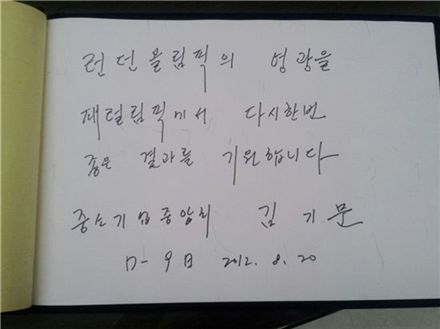 런던올림픽의 영광을
패럴림픽에서 다시한번
좋은 결과를 기원합니다
중소기업중앙회 김기문
D-9日 2012. 8. 20